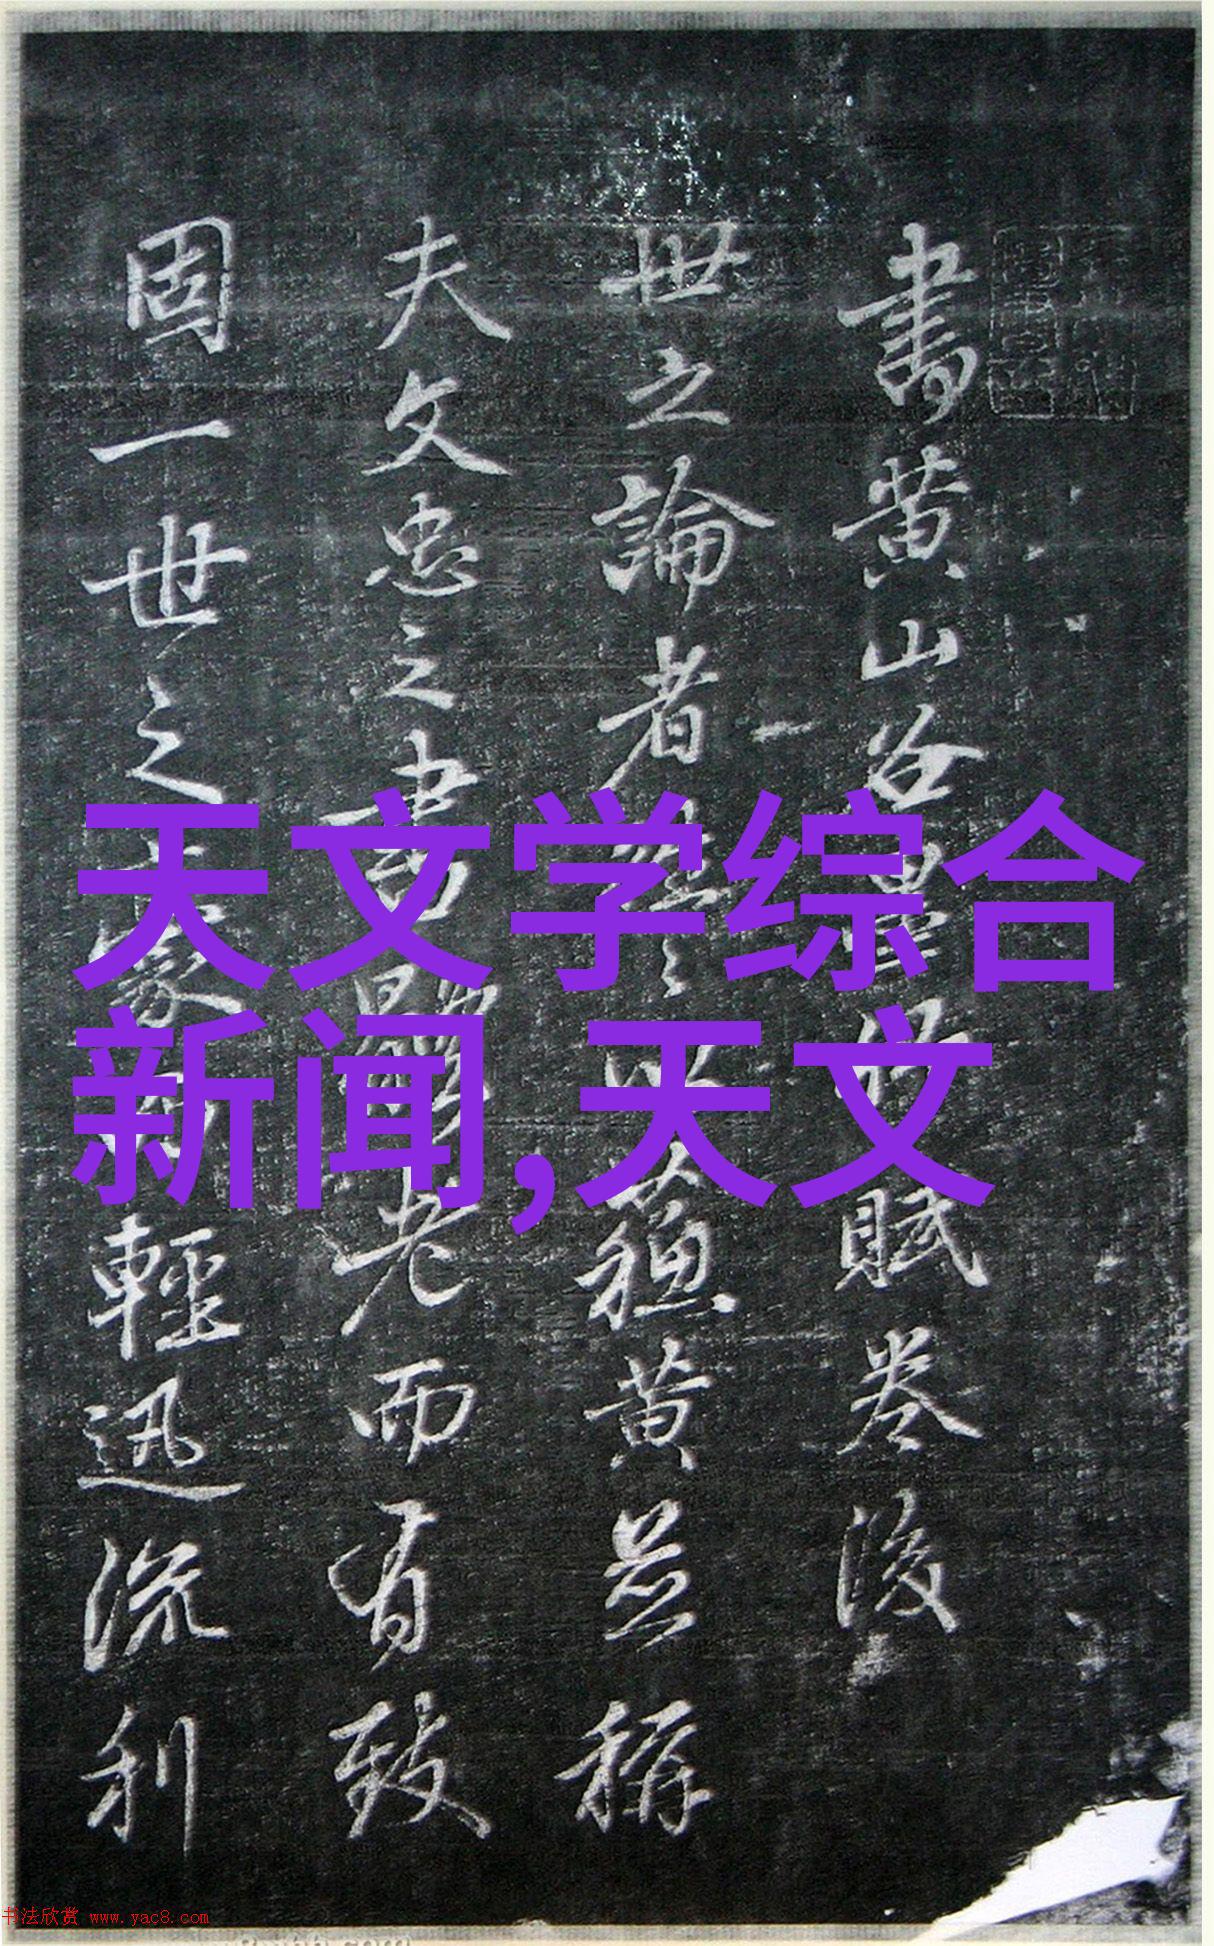 書黄山谷
賦卷後
世之論者
以蘇黄並稱
夫文忠之書
老而有致
固一世之
輕迅流利
天文学综合
新闻,天文
书法欣赏 www.yac8.com